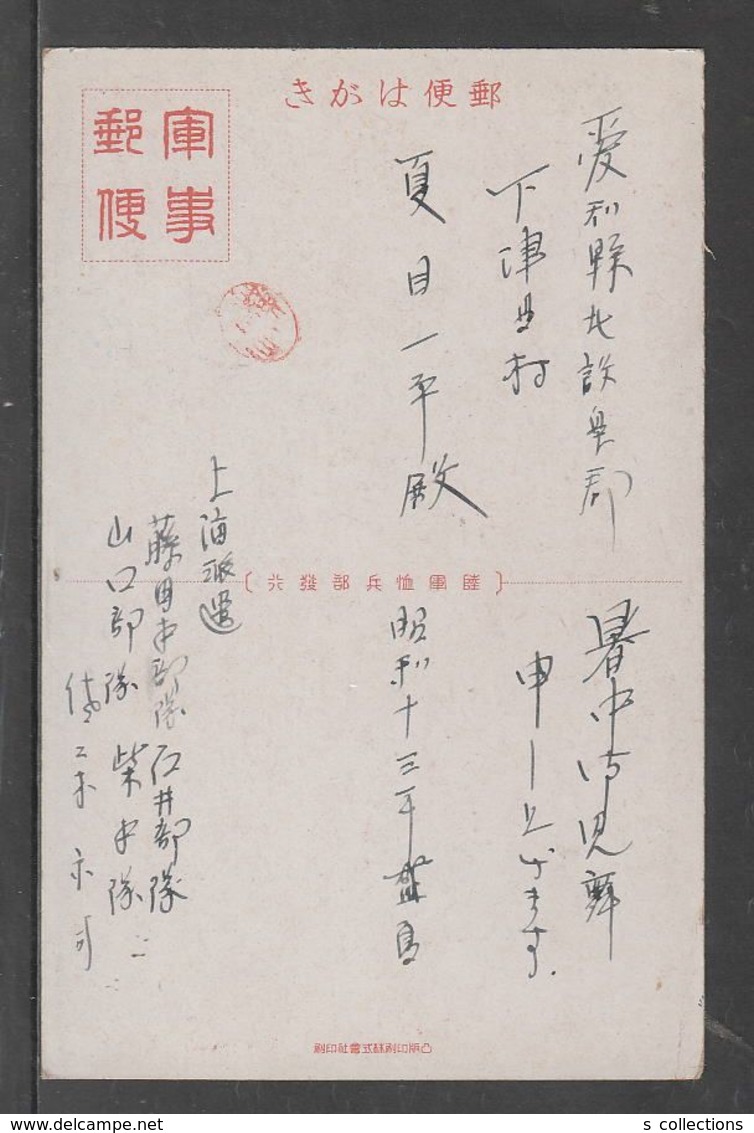 郵便はがき
軍事郵便
愛知縣北設楽郡
下津具村
夏目一平殿
陸軍恤兵部發行
暑中御見舞
申し上げます。
昭和十三年盛夏
上海派遣
藤田部隊 石井部隊
山口部隊 柴田隊
凸版印刷株式會社印刷
s collections